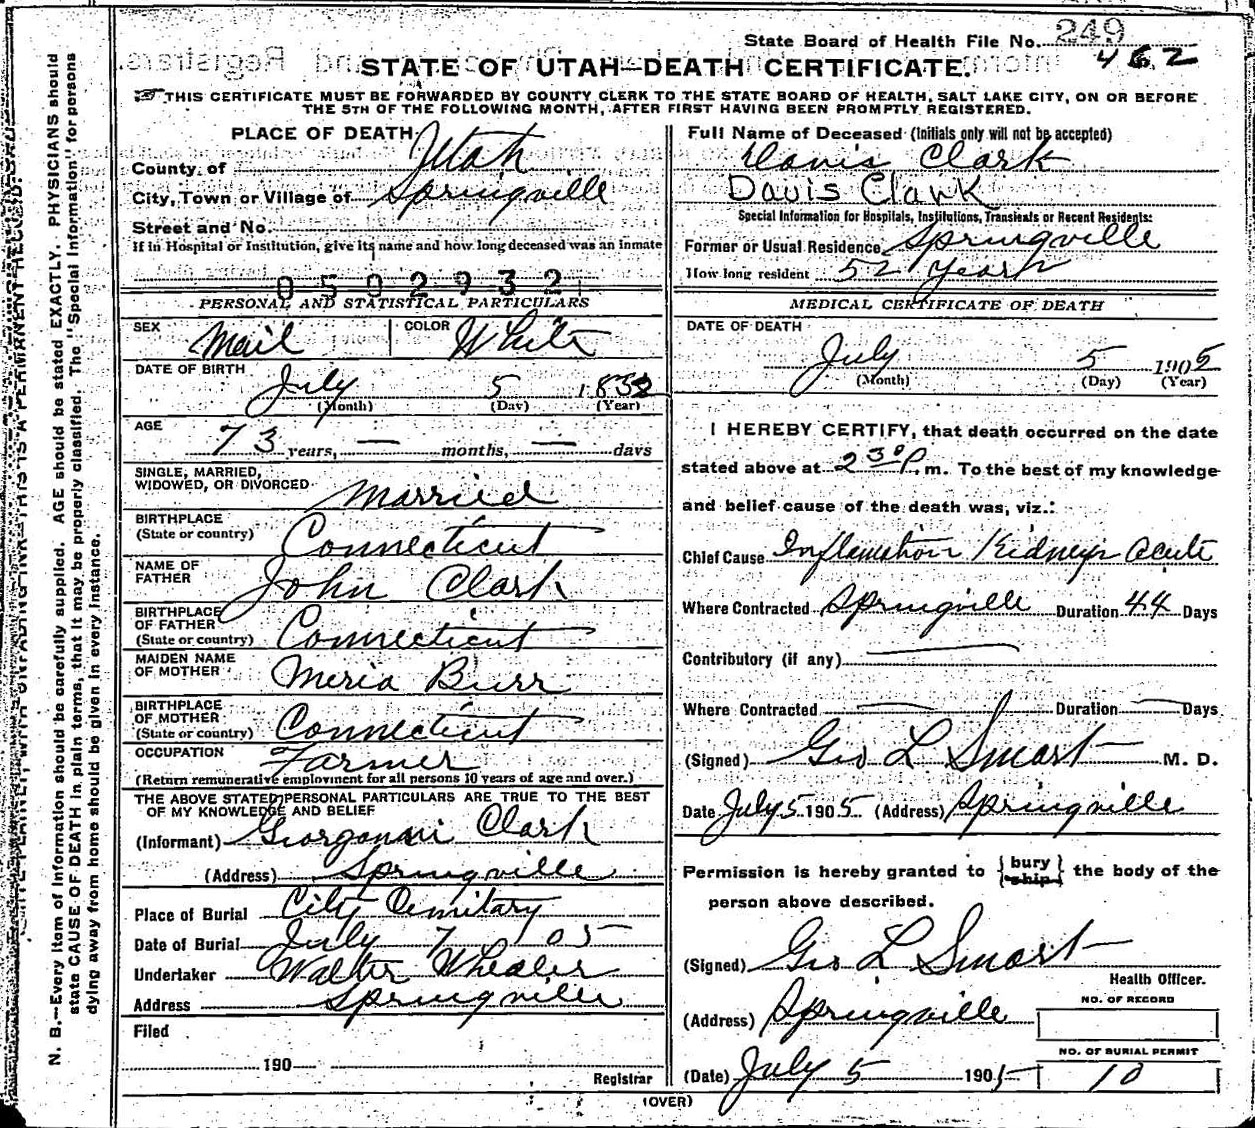 State Board of Health File No. 249
462
STATE OF UTAH—DEATH CERTIFICATE.
THIS CERTIFICATE MUST BE FORWARDED BY COUNTY CLERK TO THE STATE BOARD OF HEALTH, SALT LAKE CITY, ON OR BEFORE
THE 5TH OF THE FOLLOWING MONTH, AFTER FIRST HAVING BEEN PROMPTLY REGISTERED.
PLACE OF DEATH
County of Utah
City, Town or Village of Springville
Street and No.
If in Hospital or Institution, give its name and how long deceased was an inmate
0502932
PERSONAL AND STATISTICAL PARTICULARS
SEX Mail COLOR White
DATE OF BIRTH
July 5 1832
(Month) (Day) (Year)
AGE
73 years, — months, — days
SINGLE, MARRIED,
WIDOWED, OR DIVORCED Married
BIRTHPLACE
(State or country) Connecticut
NAME OF
FATHER John Clark
BIRTHPLACE
OF FATHER
(State or country) Connecticut
MAIDEN NAME
OF MOTHER Meria Burr
BIRTHPLACE
OF MOTHER
(State or country) Connecticut
OCCUPATION Farmer
(Return remunerative employment for all persons 10 years of age and over.)
THE ABOVE STATED PERSONAL PARTICULARS ARE TRUE TO THE BEST
OF MY KNOWLEDGE AND BELIEF
(Informant) Clark
(Address) Springville
Place of Burial City Cemitary
Date of Burial July 7 05
Undertaker Walter Wheeler
Address Springville
Filed
190
Registrar
Full Name of Deceased (Initials only will not be accepted)
Davis Clark
Davis Clark
Special Information for Hospitals, Institutions, Transients or Recent Residents:
Former or Usual Residence Springville
How long resident 52 Years
MEDICAL CERTIFICATE OF DEATH
DATE OF DEATH
July 5 1905
(Month) (Day) (Year)
I HEREBY CERTIFY, that death occurred on the date
stated above at 2 30 P. m. To the best of my knowledge
and belief cause of the death was, viz.:
Chief Cause Inflamation Kidneys acute
Where Contracted Springville Duration 44 Days
Contributory (if any) —
Where Contracted — Duration — Days
(Signed) Geo L Smart M. D.
Date July 5 1905 (Address) Springville
Permission is hereby granted to { bury ship } the body of the
person above described.
(Signed) Geo L Smart
Health Officer.
(Address) Springville
NO. OF RECORD
NO. OF BURIAL PERMIT
(Date) July 5 1905 10
(OVER)
N. B.—Every item of information should be carefully supplied. AGE should be stated EXACTLY. PHYSICIANS should
state CAUSE OF DEATH in plain terms, that it may be properly classified. The "Special Information" for persons
dying away from home should be given in every instance.